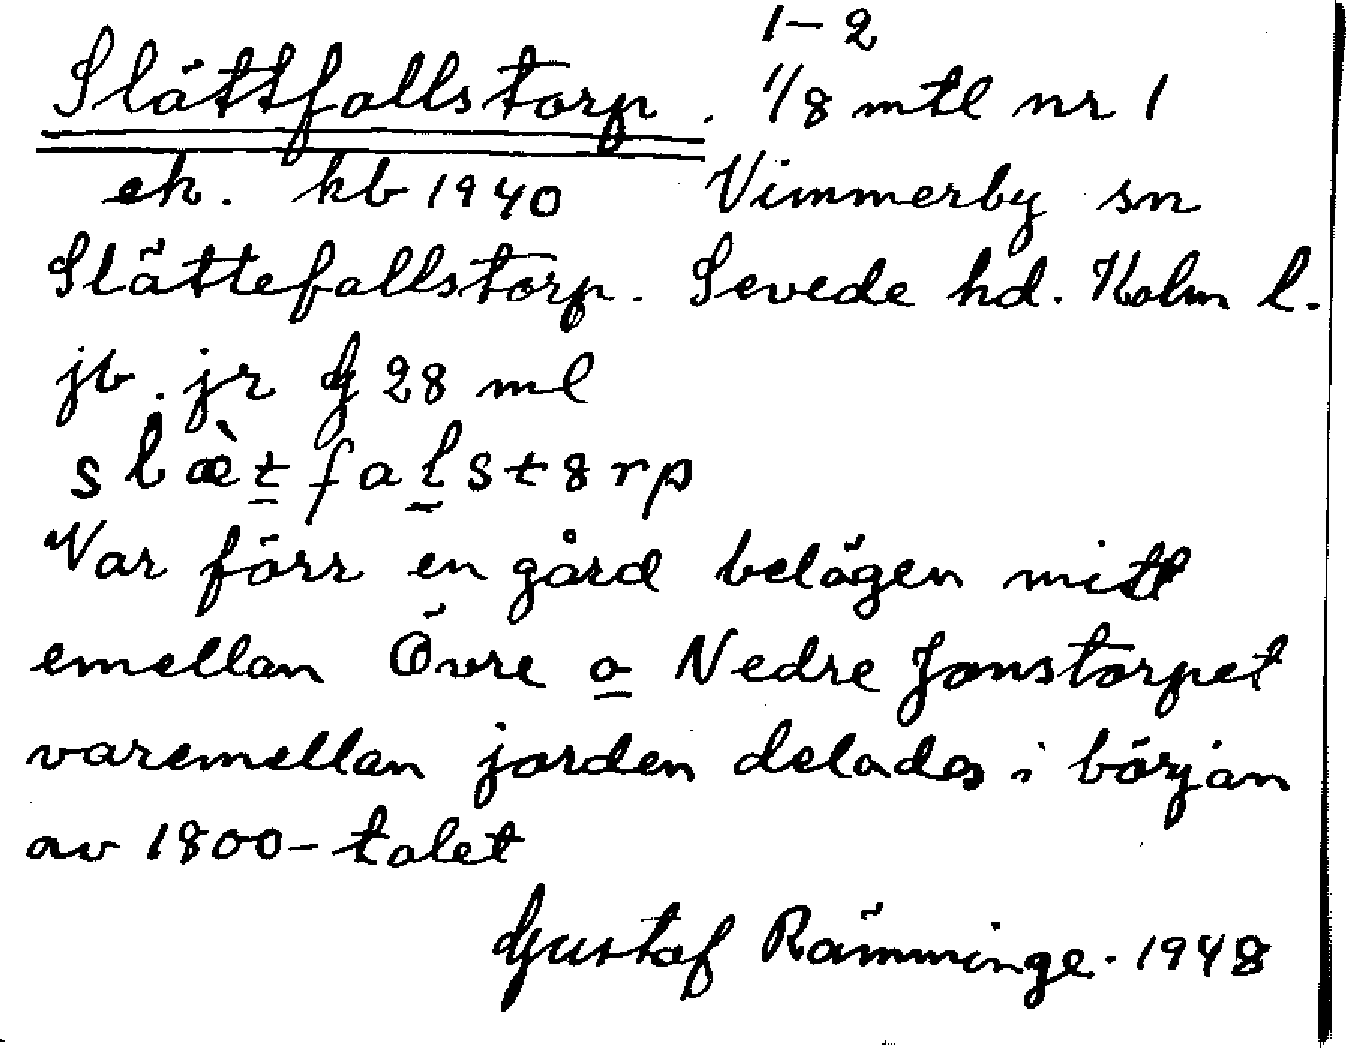 1–2
Slättfallstorp. 1/8 mtl nr 1
ek. kb 1940 Vimmerby sn
Slättefallstorp. Sevede hd. Kalm l.
jb. jr G 28 ml
slæ̀t̲fal̲st8rp
Var förr en gård belägen mitt
emellan Övre o̲ Nedre Jonstorpet
varemellan jorden delades i början
av 1800-talet
Gustaf Rämminge. 1948